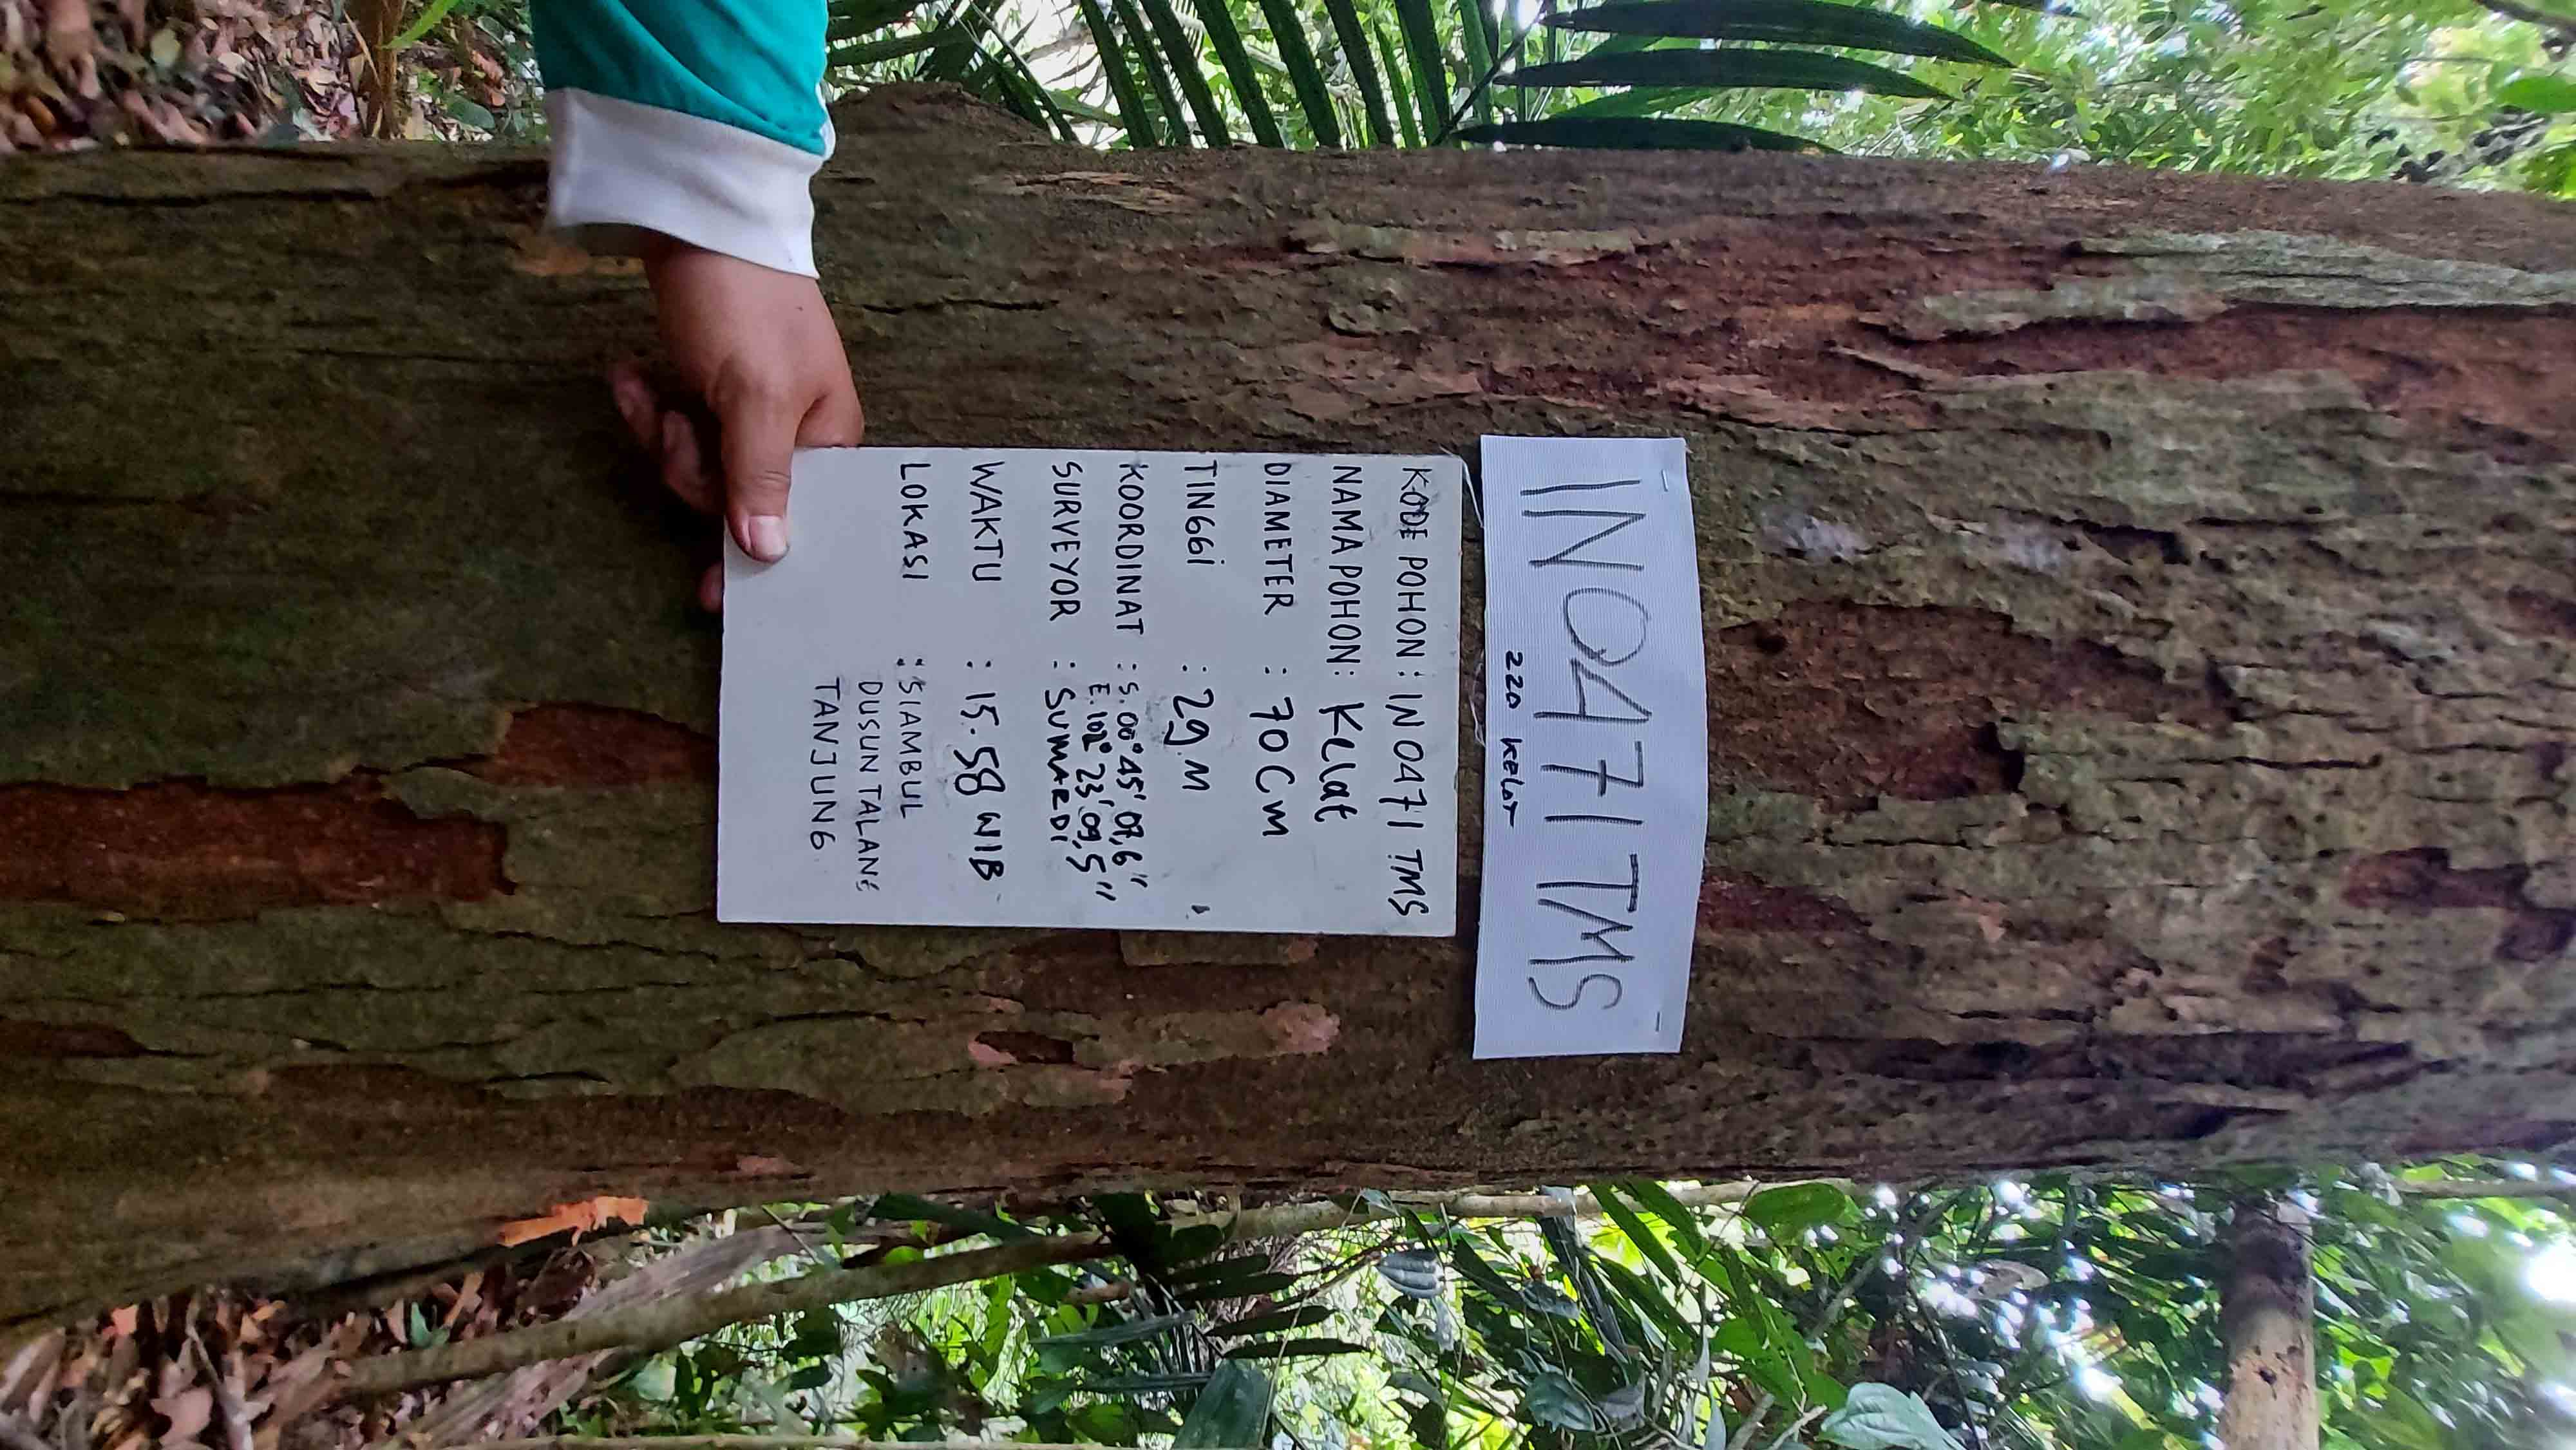 IN0471TMS
220 KELAT
KODE POHON : IN 0471 TMS
NAMA POHON : Kelat
DIAMETER : 70 Cm
TINGGI : 29 M
KOORDINAT : S. 00° 45' 07,6"
E. 102° 23' 09,5"
SURVEYOR : SUMARDI
WAKTU : 15.58 WIB
LOKASI : SIAMBUL
DUSUN TALANG
TANJUNG